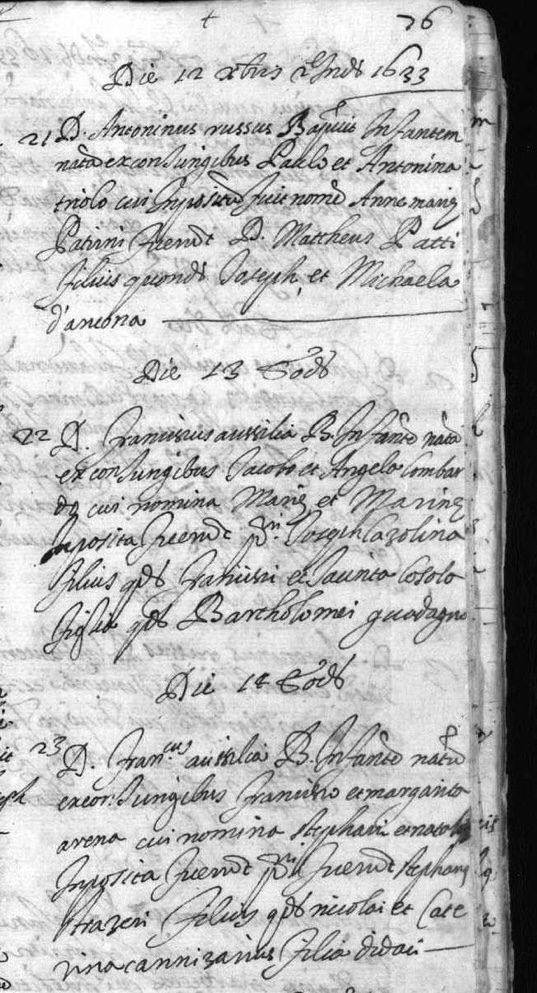 + 76
Die 12 xbris 2e Inds 1633
21 D. Antoninus russus Baptiz.it Infantem
natã ex coniungibus Paulo et Antonina
triolo cui Impositũ fuit nomẽ Anne mariẹ
Patrini fuerũt D. Mattheus Patti
filius quonds Joseph, et Michaela
d'ancona
Die 13 Eods
22 D. Franciscus aussilia B. Infãte natã
ex coniungibus Jacobo et Angela lombar
do cui nomina Mariẹ et Marinẹ
Inposita fuerũt p.ni Joseph Cazolina
filius qds Francisci et Jacinta Cosolo
figlia qds Bartholomei guadagno
Die 18 Eods
23 D. Fran.cus aussilia B. Infãte natũ
ex con.Iungibus Francisco et margarita
arena cui nomina stephani et natalis
Inposita fuerũt p.ni fuerũt stephanꝰ
strazeri filius qds nicolai et Cate
rina cannizarius filia didaci